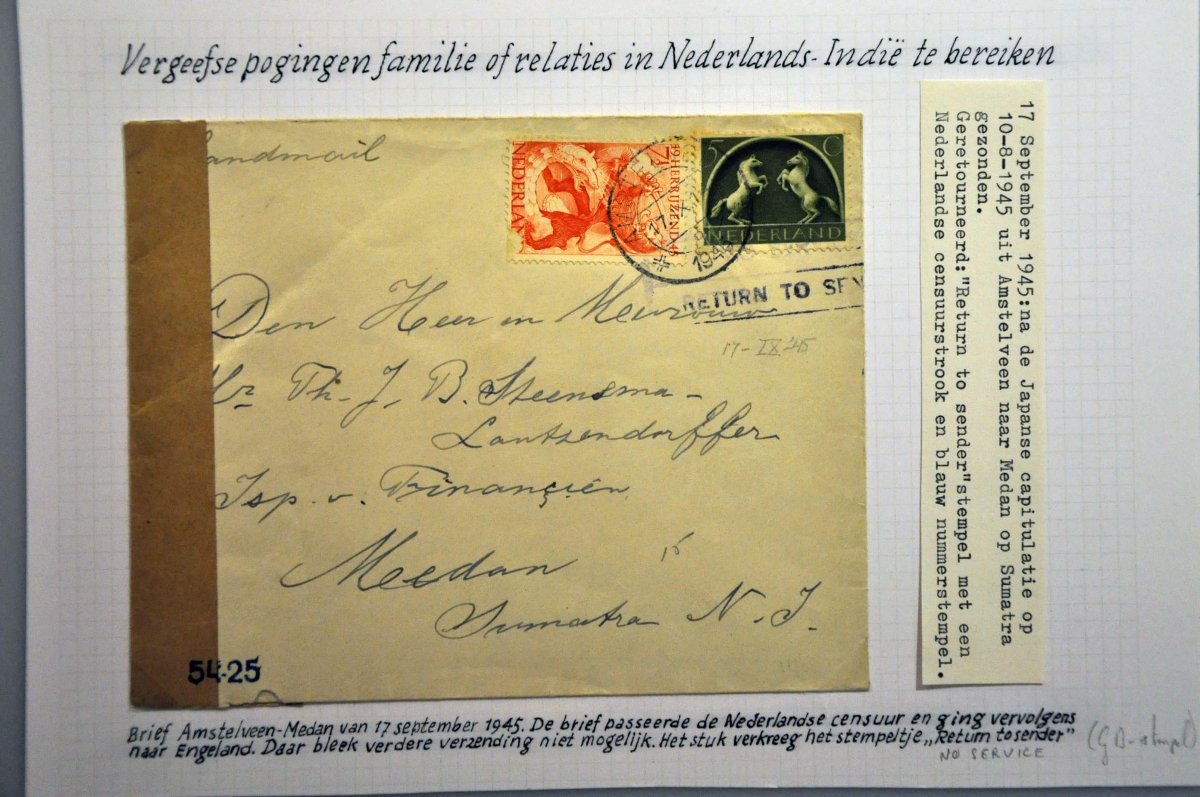 Vergeefse pogingen familie of relaties in Nederlands-Indië te bereiken
Landmail
NEDERLAND
7½
HERRIJZEND
5 C
NEDERLAND
17
1945
RETURN TO SEN
Den Heer en Mevrouw
17-IX 45
Mr Th. J. B. Steensma-
Lantzendorffer
Isp. v. Financiën
Meedan
15
Sumatra N. I.
54-25
17 September 1945:na de Japanse capitulatie op
10-8-1945 uit Amstelveen naar Medan op Sumatra
gezonden.
Geretourneerd:"Return to sender"stempel met een
Nederlandse censuurstrook en blauw nummerstempel.
Brief Amstelveen-Medan van 17 september 1945. De brief passeerde de Nederlandse censuur en ging vervolgens
naar Engeland. Daar bleek verdere verzending niet mogelijk. Het stuk verkreeg het stempeltje „Return to sender"
NO SERVICE
(GB-stempel)